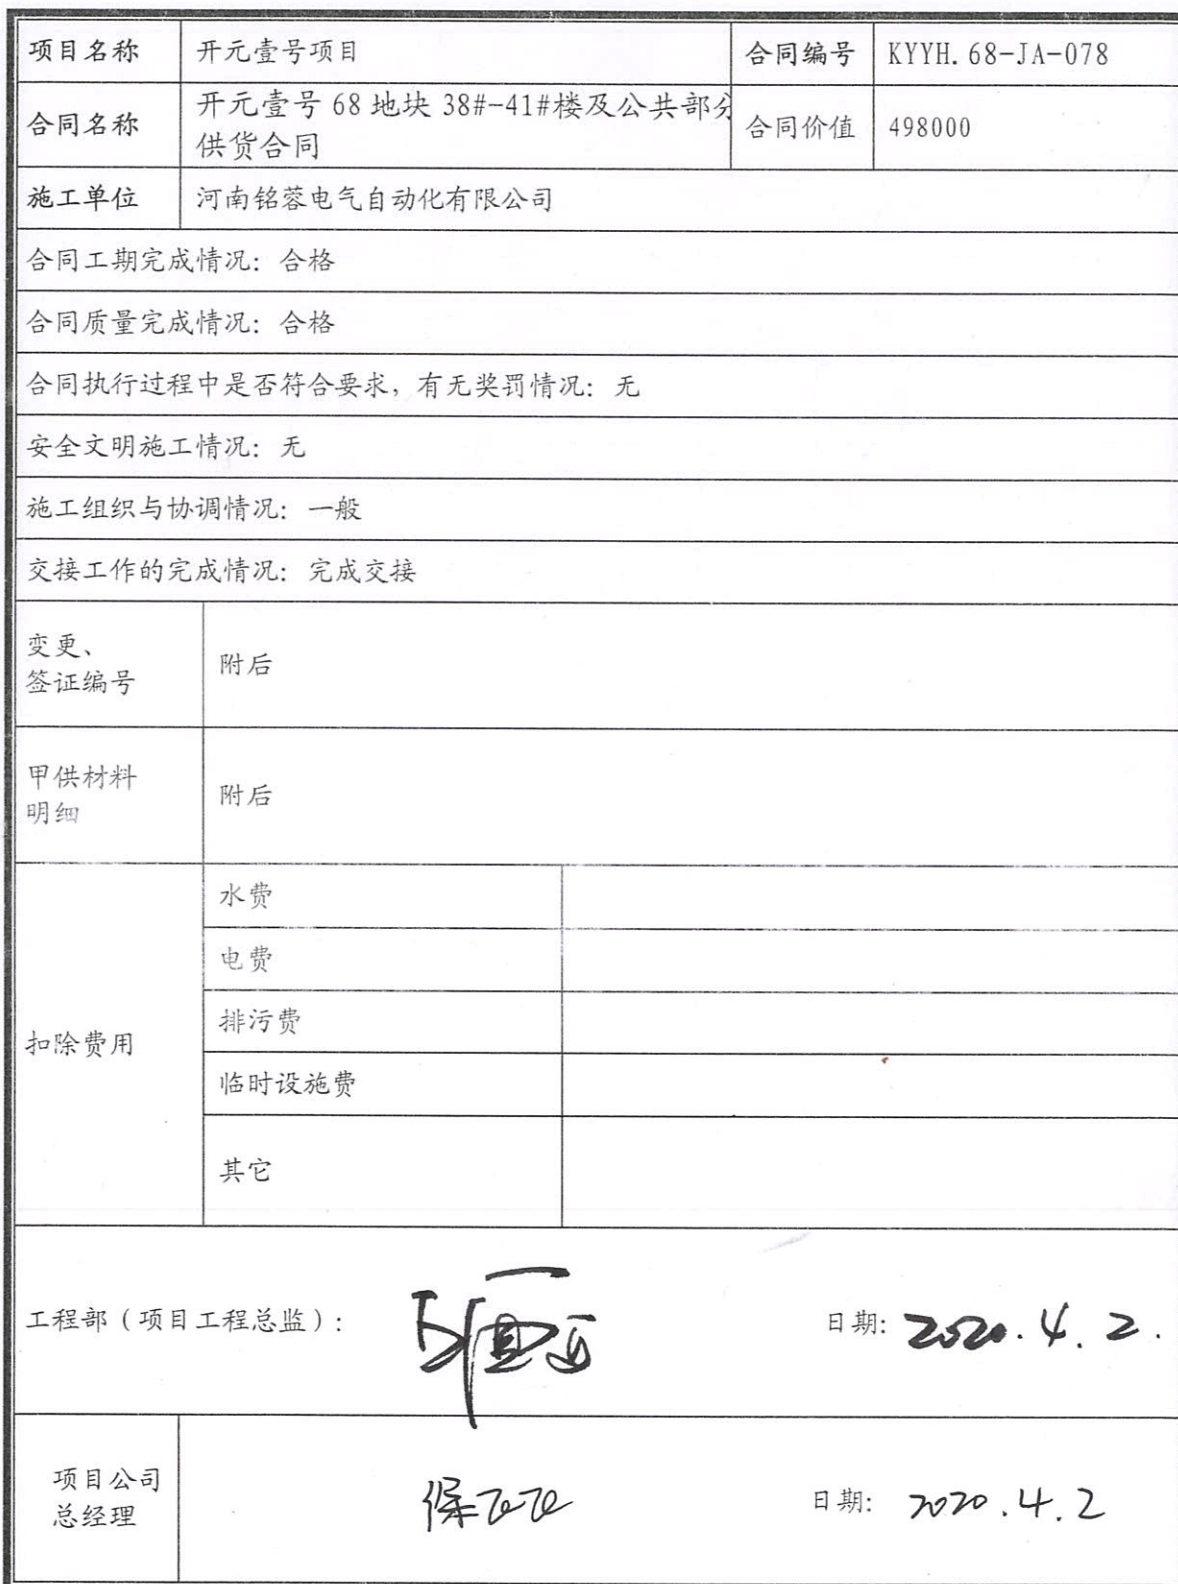 项目名称 开元壹号项目 合同编号 KYYH.68-JA-078
合同名称 开元壹号 68 地块 38#-41#楼及公共部分
供货合同 合同价值 498000
施工单位 河南铭蓉电气自动化有限公司
合同工期完成情况：合格
合同质量完成情况：合格
合同执行过程中是否符合要求，有无奖罚情况：无
安全文明施工情况：无
施工组织与协调情况：一般
交接工作的完成情况：完成交接
变更、
签证编号 附后
甲供材料
明细 附后
扣除费用
水费
电费
排污费
临时设施费
其它
工程部（项目工程总监）： 日期: 2020.4.2.
项目公司
总经理 日期: 2020.4.2